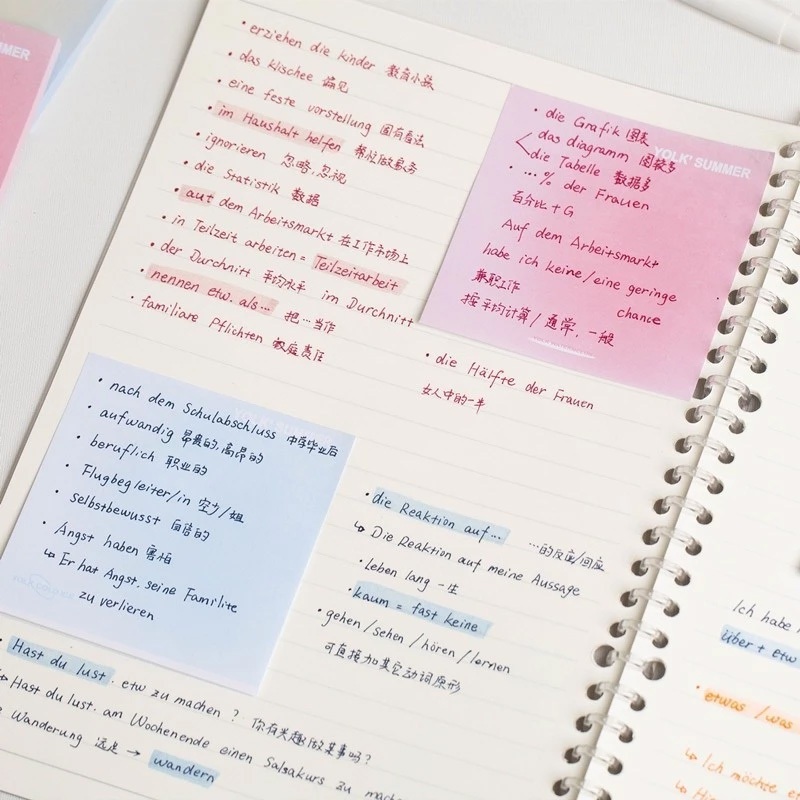 • erziehen die kinder 教育小孩
• das klischee 偏见
• eine feste vorstellung 固有看法
• im Haushalt helfen 帮忙做家务
• ignorieren 忽略,忽视
• die Statistik 数据
• auf dem Arbeitsmarkt 在工作市场上
• in Teilzeit arbeiten = Teilzeitarbeit
• der Durchnitt 平均水平 im Durchnitt
• nennen etw. als... 把…当作
• familiäre Pflichten 家庭责任
YOLK' SUMMER
• die Grafik 图表
das diagramm
die Tabelle
• ...% der Frauen
百分比 + G
Auf dem Arbeitsmarkt
habe ich keine/eine geringe
chance
兼职工作
按平均计算/通常,一般
• die Hälfte der Frauen
女人中的一半
• nach dem Schulabschluss 中学毕业后
• aufwandig 昂贵的,高昂的
• beruflich 职业的
• Flugbegleiter/in 空少/姐
• selbstbewusst 自信的
• Angst haben 害怕
↳ Er hat Angst, seine Familite
zu verlieren
• die Reaktion auf... …的反应/回应
↳ Die Reaktion auf meine Aussage
• Leben lang 一生
• kaum = fast keine
• gehen/sehen/hören/lernen
可直接加其它动词原形
• Hast du lust. etw zu machen? 你有兴趣做某事吗?
↳ Hast du lust. am Wochenende einen Salsakurs zu mach
Wanderung 远足 → wandern
Ich habe
über + etw
• etwas / was
↳ Ich möchte
SUMMER